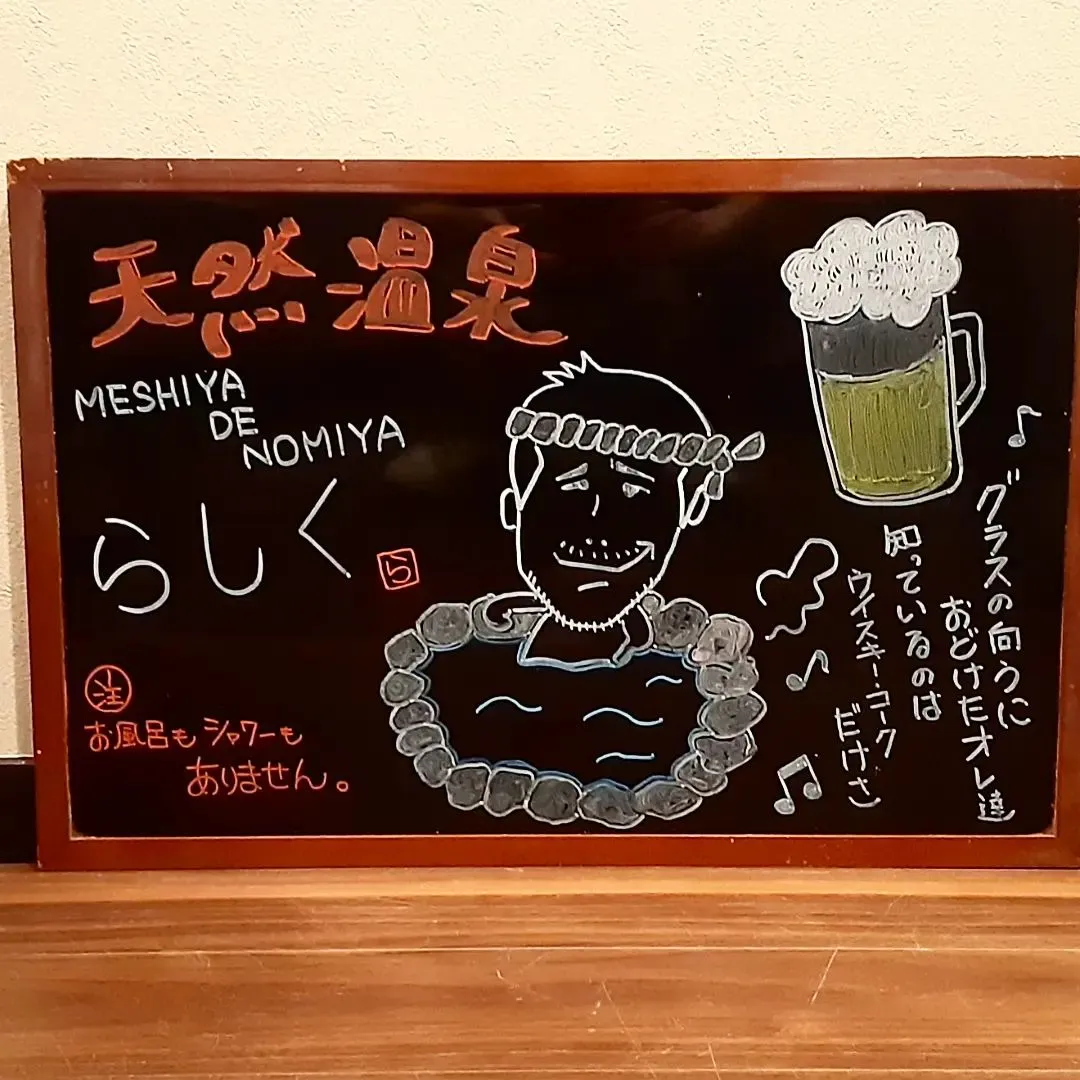 天然温泉
MESHIYA
DE
NOMIYA
らしく
ら
注
お風呂もシャワーも
ありません。
グラスの向うに
おどけたオレ達
知っているのは
ウイスキー・コーク
だけさ